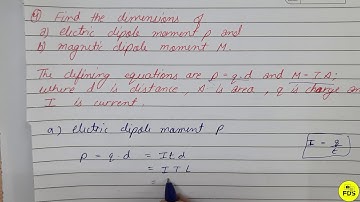 Q Find the dimensions of
a) electric dipole moment p and
b) magnetic dipole moment M.
The defining equations are p = q.d and M = I A;
where d is distance, A is area, q is charge and
I is current.
a) electric dipole moment p
p = q d = I t d
I = q/t
= I T L
=
FDS